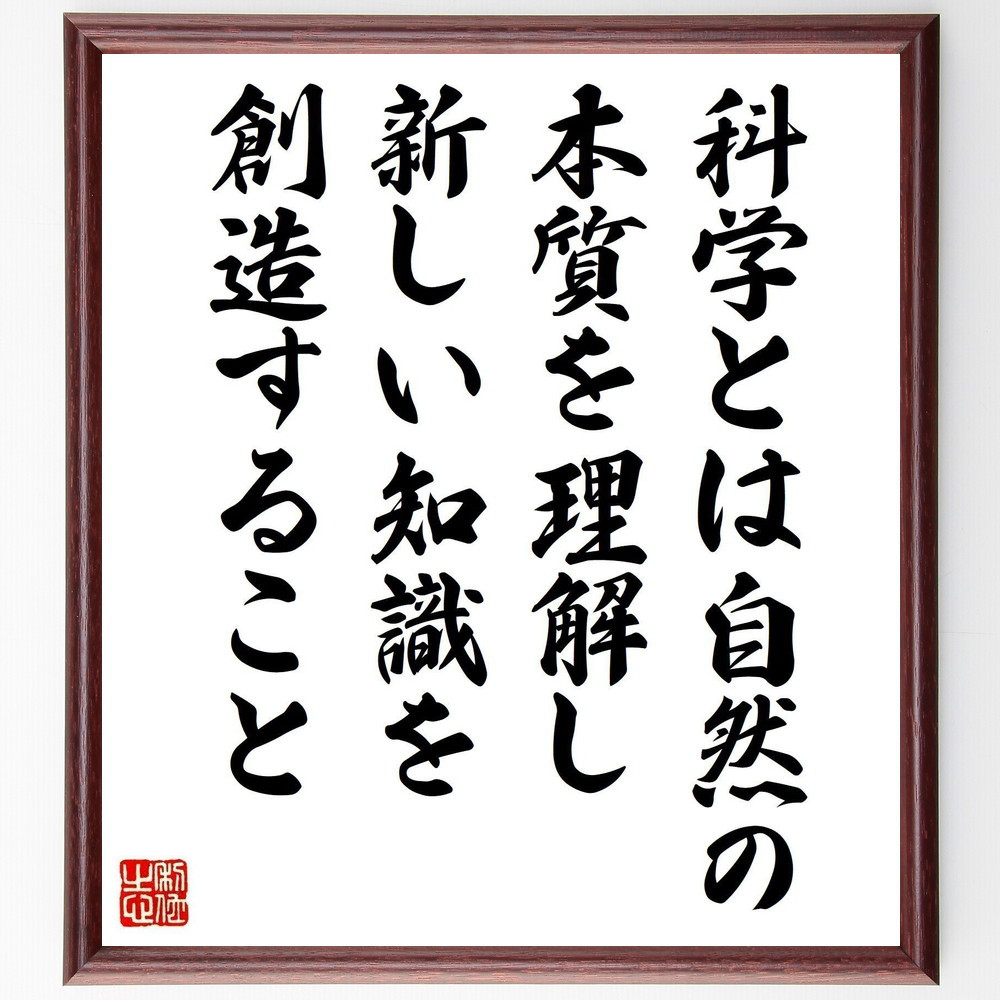 科学とは自然の
本質を理解し
新しい知識を
創造すること